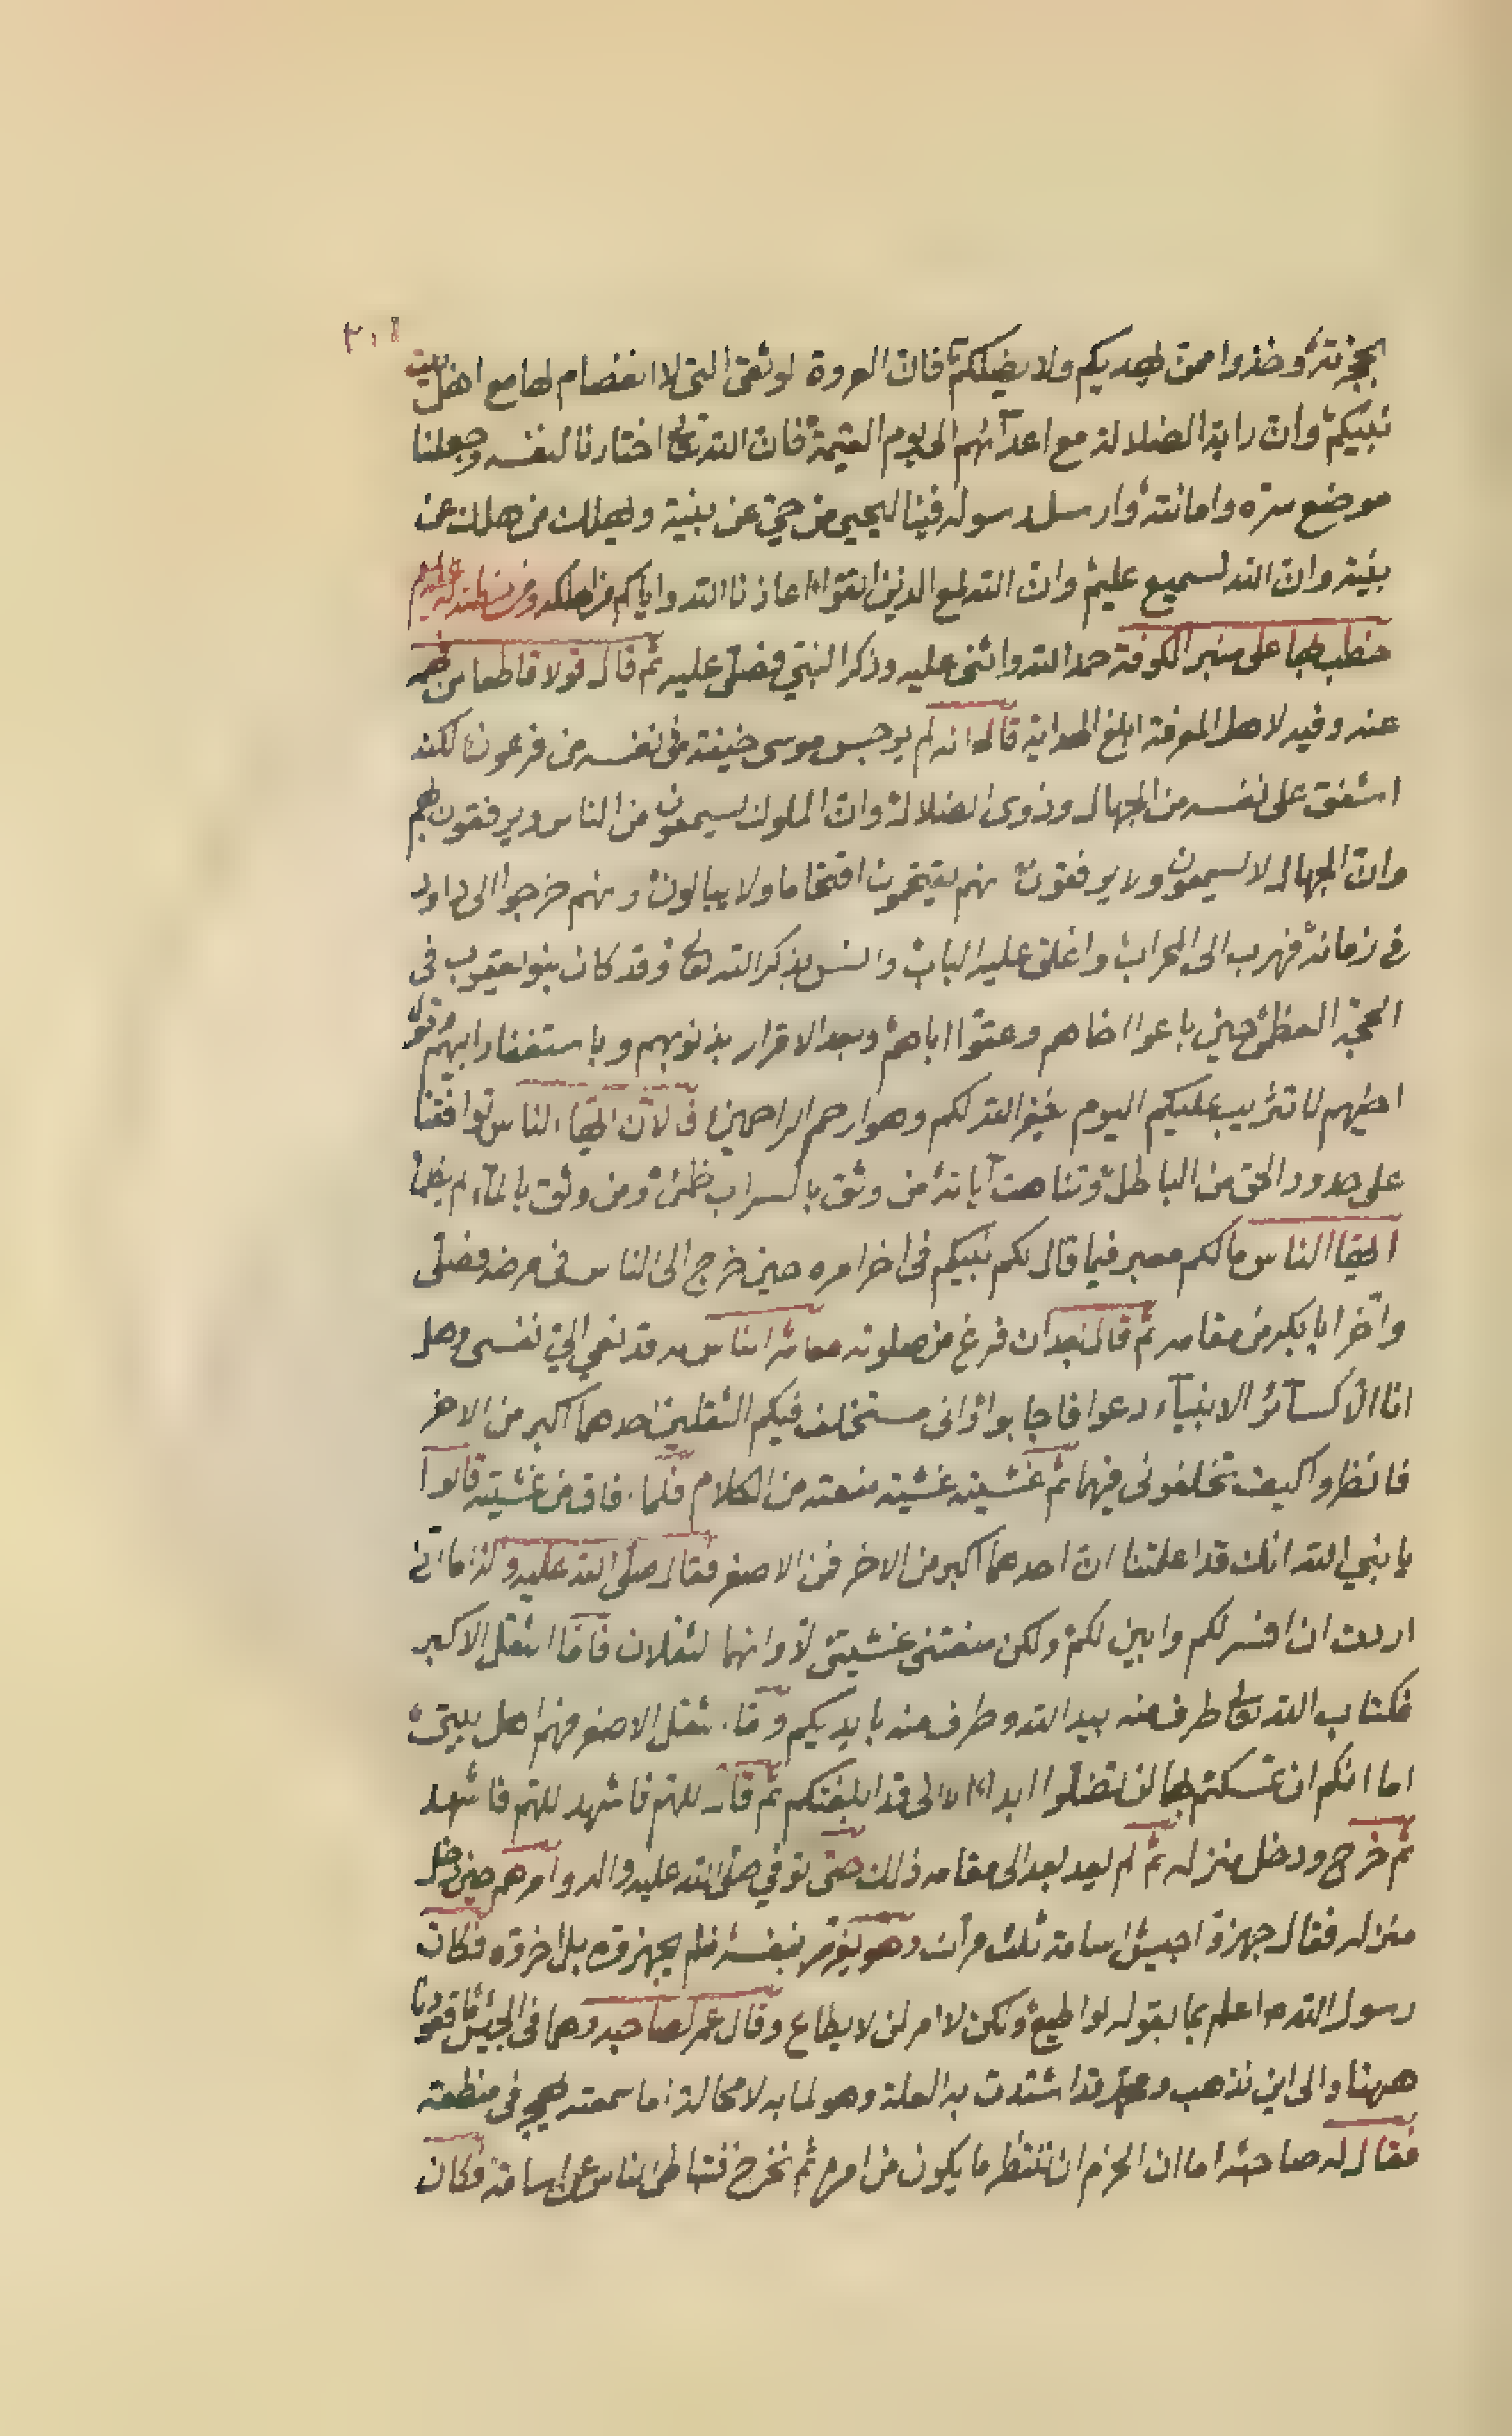 ٣٠١
بحجزته وخذوا ممن يهديكم ولا يضلكم فان العروة لوثقى التى لا انفصام لها مع اهل بيت
نبيكم وان راية الضلالة مع اعدآئهم الى يوم القيمة فان الله تعالى اختارنا لنفسه وجعلنا
موضع سره وامانته وارسل رسوله فينا ليحيى من حيّ عن بينة وليهلك من هلك عن
بينة وان الله لسميع عليم وان الله لمع الذين اتقوا اعاذنا الله واياكم من الهلكه ومن خطبة له عليه السلام
خطب بها على منبر الكوفة حمد الله واثنى عليه وذكر النبي فصلى عليه ثم قال قولا قاطعا من
عنه وفيه لاهل المعرفة ابلغ الهداية قال انه لم يوجس موسى خيفة في نفسه من فرعون لكنه
اشفق على نفسه من الجهال وذوى الضلالة وان الملوك يسمعون من الناس ويرفقون بهم
وان الجهال لا يسمعون ولا يرفقون نهم يقتحمون اقتحاما ولا يبالون ونهم خرجوا الى داود
في زمانه فهرب الى المحراب واغلق عليه الباب وانس بذكر الله تعالى وقد كان بنو يعقوب فى
العظمى حين باعوا اخاهم وعقوا اباهم وبعد الاقرار بذنوبهم وباستغفار ابيهم وقول
اخيهم لا تثريب عليكم اليوم يغفر الله لكم وهو ارحم الراحمين فالآن ايها الناس توافقنا
على حدود الحق من الباطل وتناهت آياته من وثق بالسراب ظمئ ومن وثق بالمآء لم يظما
ايها الناس مالكم معبر فيما قال لكم نبيكم فى اخر امره حين خرج الى الناس فى مرضه فصلى
واخّر ابا بكر من مقامه ثم قال بعد ان فرغ من صلوته معاشر الناس قد نعي اليّ نفسى وهل
انا الّا كسآئر الانبيآء دعوا فاجابوا وانى مستخلف فيكم الثقلين احدهما اكبر من الاخر
فانظروا كيف تخلفونى فيهما ثم غشيته غشية منعته من الكلام فلما فاق من غشيته قالوا
يا نبي الله انك قد اعلمتنا ان احدهما اكبر من الاخر فمن الاصغر فقال صلى الله عليه وآله اما انى
اردت ان افسر لكم وابين لكم ولكن منعتنى غشيتى وانهما لثقلان فامّا الثقل الاكبر
فكتاب الله تعالى طرف منه بيد الله وطرف منه بايديكم وامّا ثقل الاصغر فهم اهل بيتى
اما انكم ان تمسكتم بهما لن تضلوا ابدا الا انى قد ابلغتكم ثم قال للهم فاشهد للهم فاشهد
ثم خرج ودخل منزله ثم لم يعد بعد الى مقامه ذلك حتى توفي صلى الله عليه واله وامرهم حين دخل
منزله فقال جهزوا جيش اسامة ثلث مرآت وهو يغرغر بنفسه فلم يجهزوه بل اخروه فكان
رسول الله اعلم بما يقوله لو اطيع ولكن لا امر لمن لا يطاع وقال عمر لصاحبه وهما فى الجيش
ههنا والى اين نذهب ومحمد قد اشتدت به العلة وهو لما به لا محالة اما سمعته فى منطقه
فقال له صاحبه اما ان الحزم ان ننتظر ما يكون من امره ثم نخرج الناس اسامة فكان